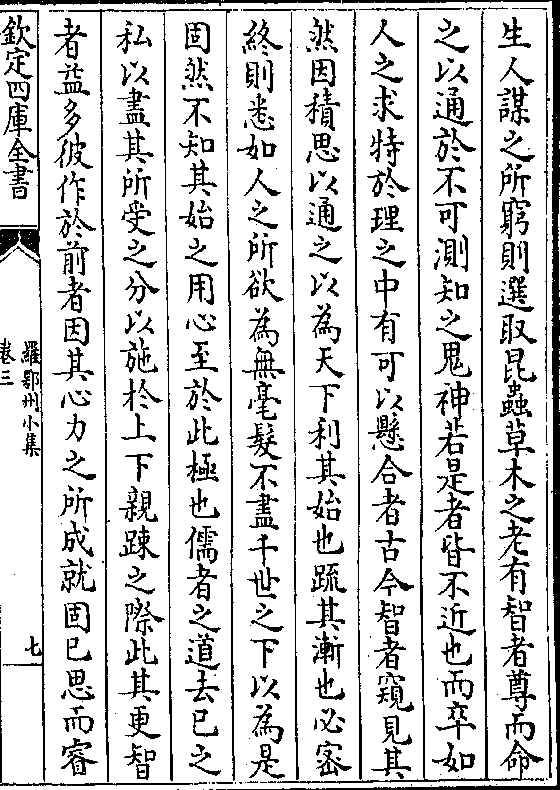 生人謀之所窮則選取昆蟲草木之老有智者尊而命
之以通於不可測知之鬼神若是者皆不近也而卒如
人之求特於理之中有可以懸合者古今智者窺見其
然因積思以通之以為天下利其始也䟽其漸也必宻
終則悉如人之所欲為無毫髮不盡千世之下以為是
固然不知其始之用心至於此極也儒者之道去已之
私以盡其所受之分以施於上下親踈之際此其更智
者益多彼作於前者因其心力之所成就固已思而睿
欽定四庫全書
羅鄂州小集
卷三
七